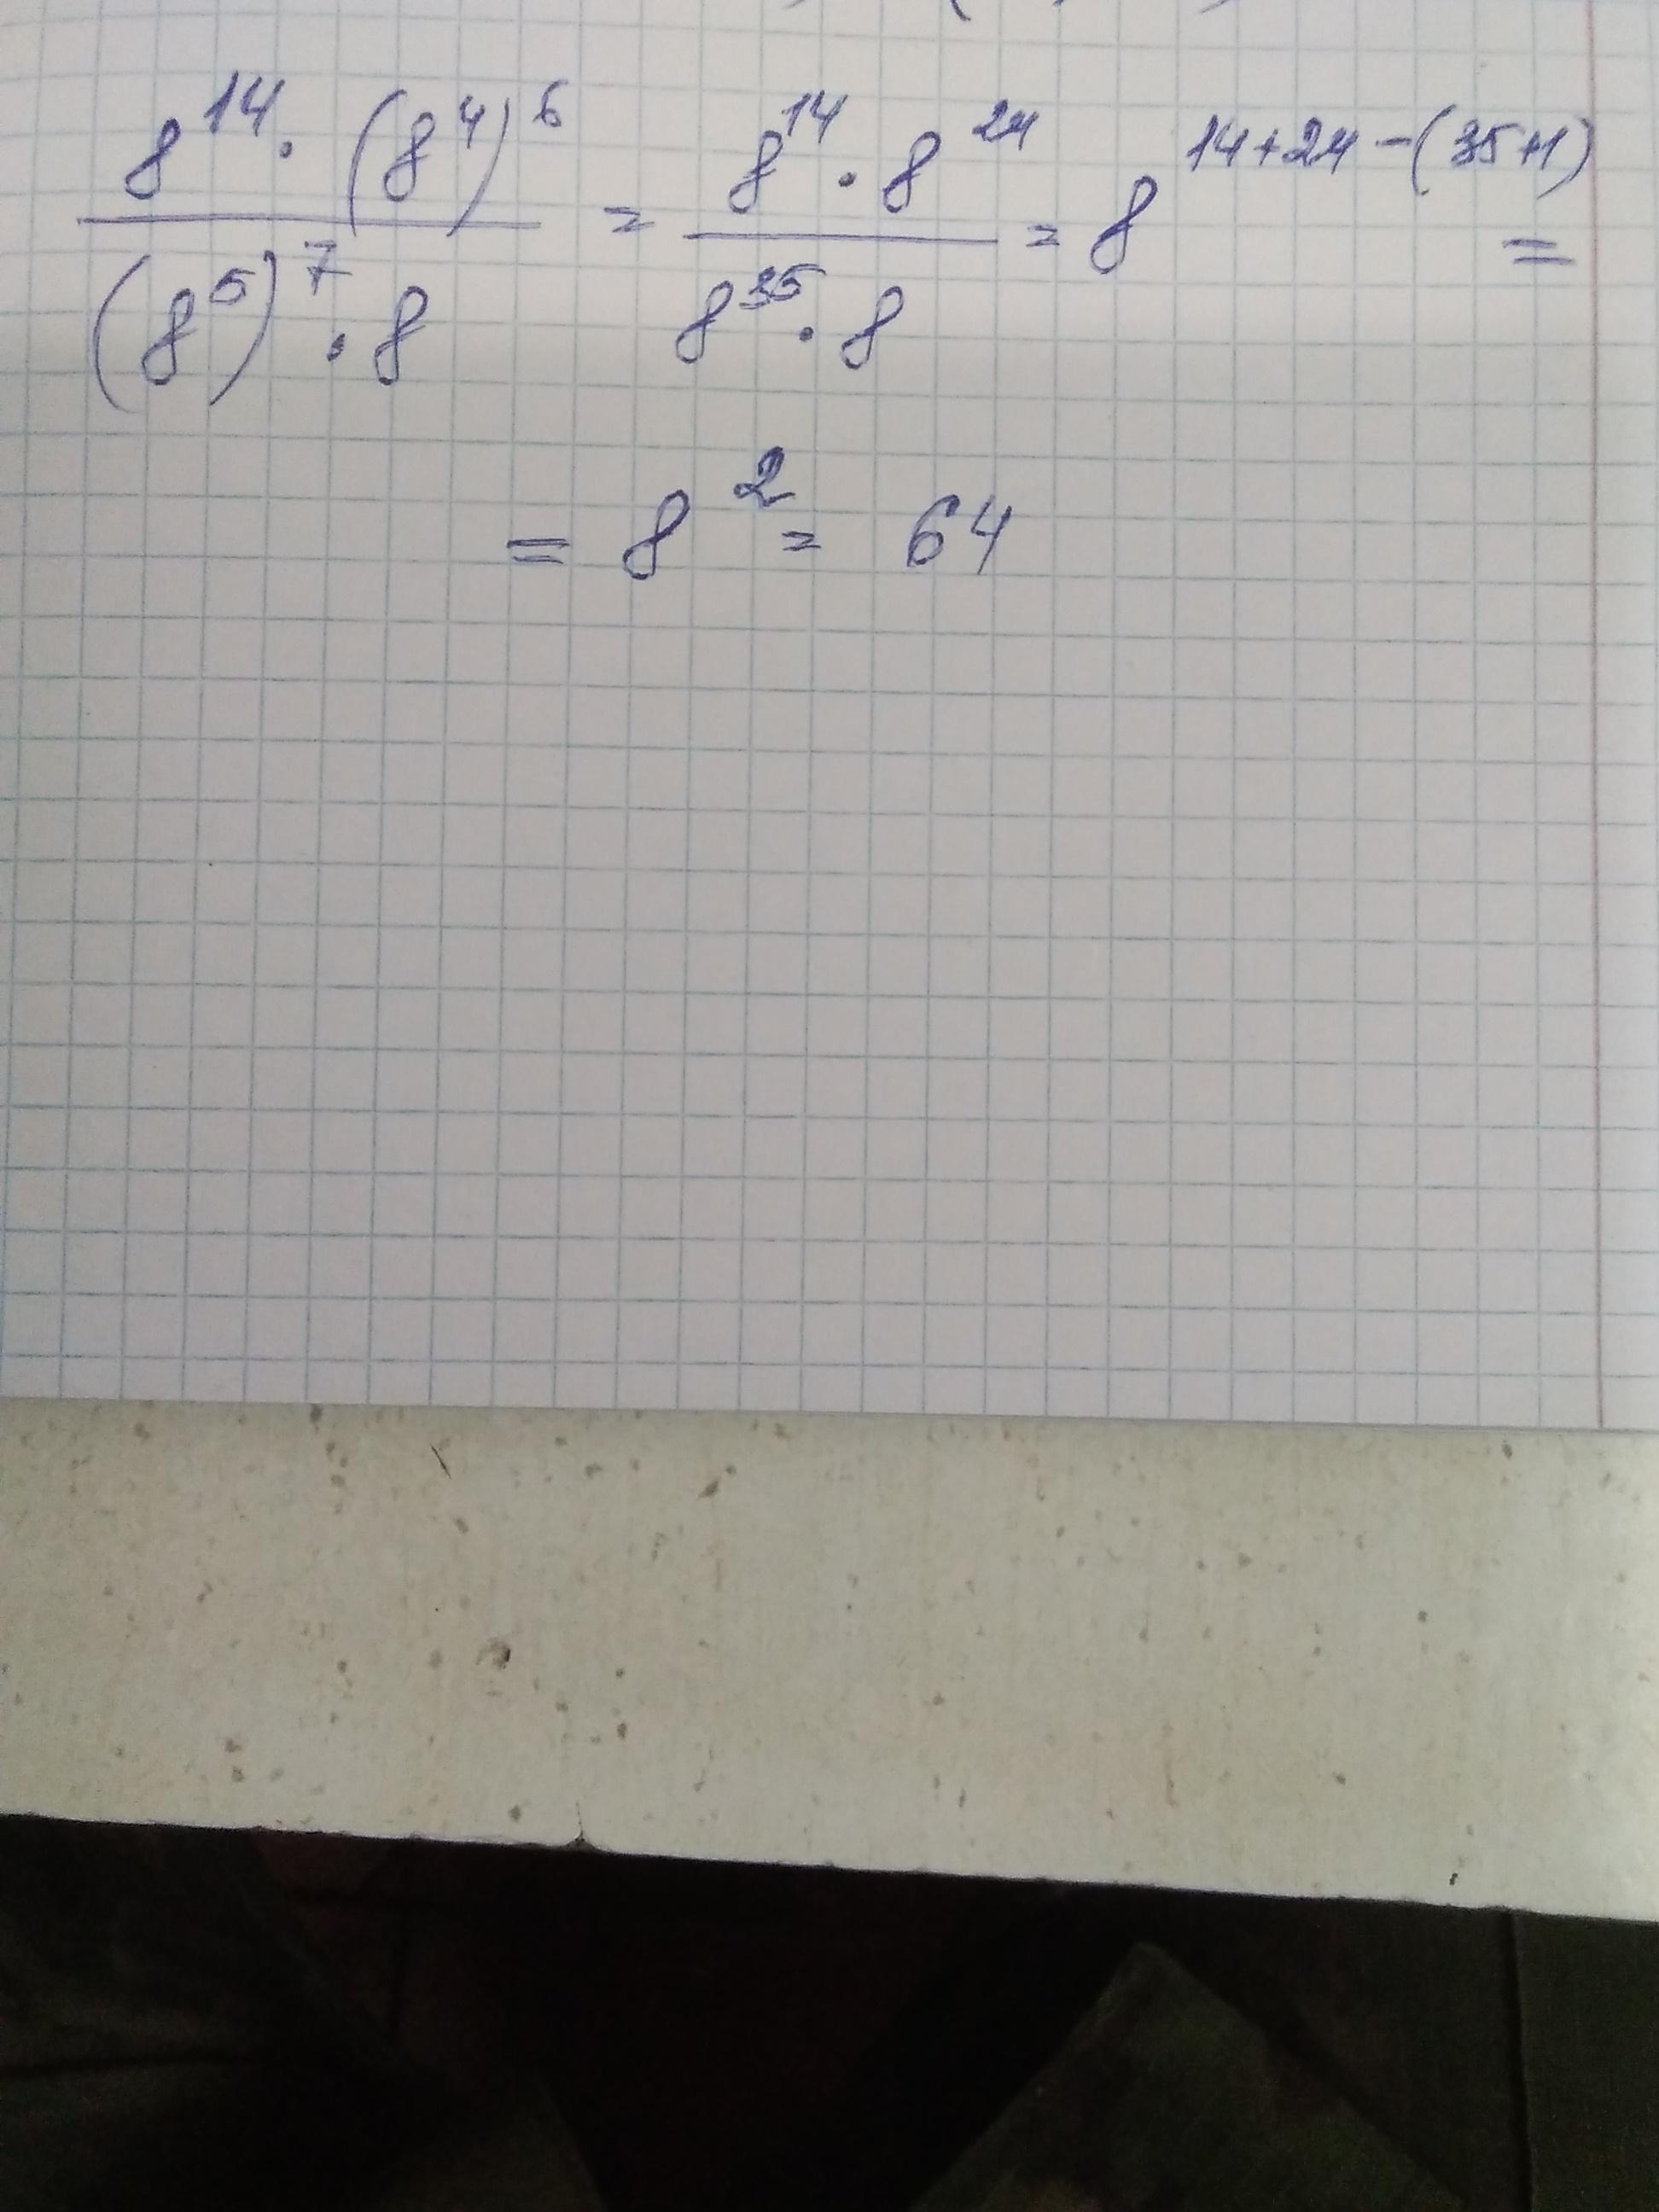 8^14 · (8^4)^6 / (8^5)^7 · 8 = 8^14 · 8^24 / 8^35 · 8 = 8^14+24-(35+1) =
= 8^2 = 64